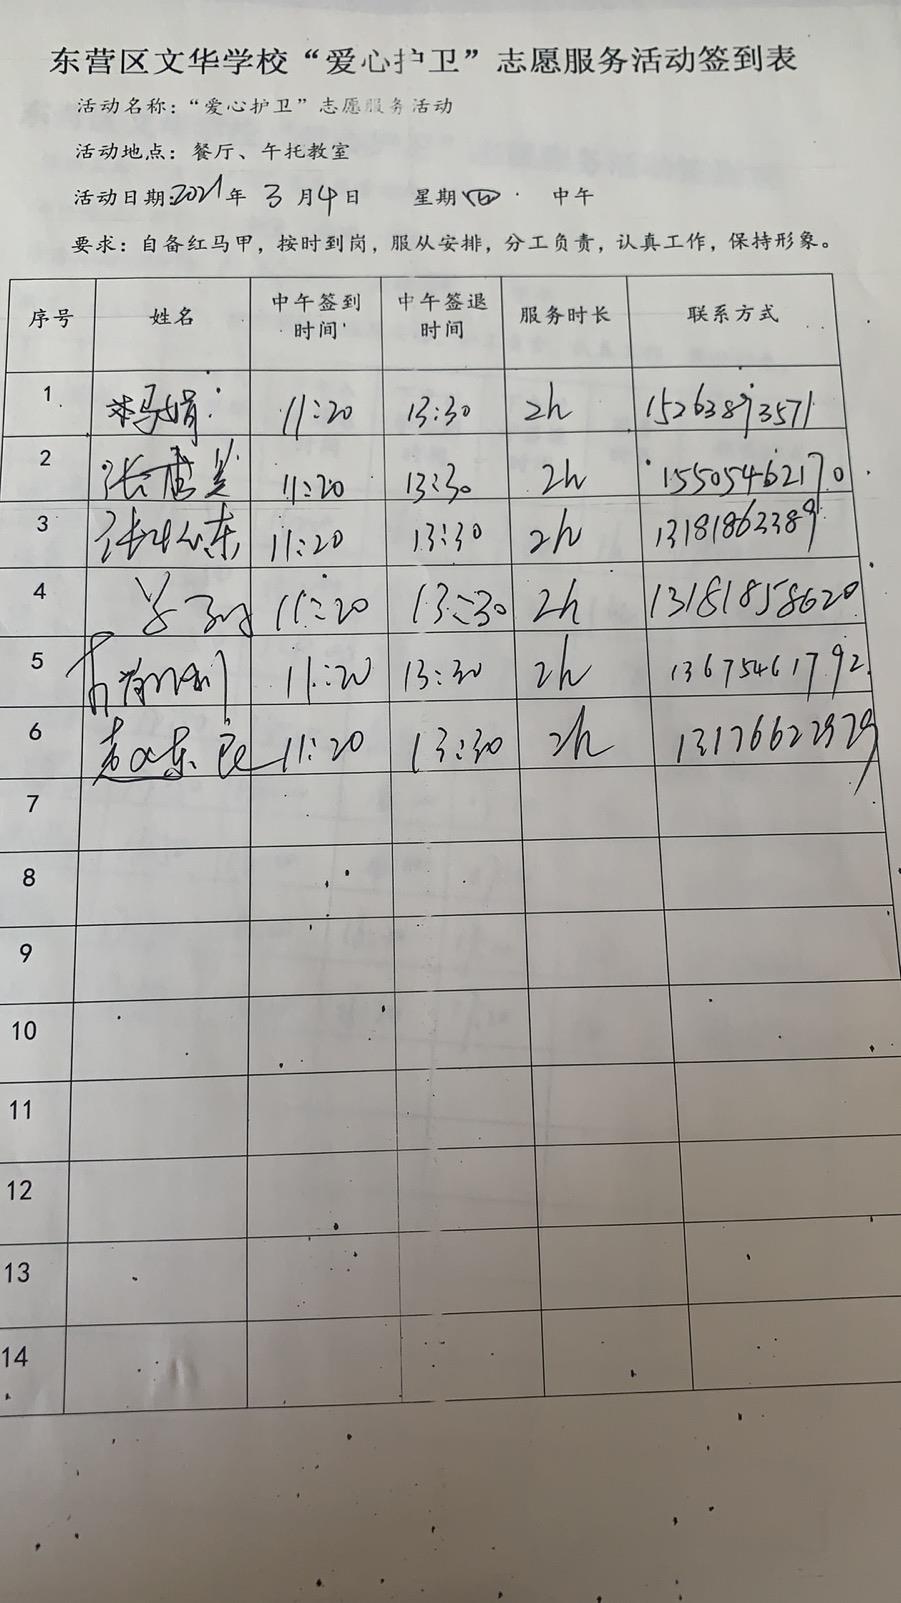 东营区文华学校“爱心护卫”志愿服务活动签到表
活动名称：“爱心护卫”志愿服务活动
活动地点：餐厅、午托教室
活动日期：2021年 3 月4日 星期四 中午
要求：自备红马甲，按时到岗，服从安排，分工负责，认真工作，保持形象。
序号 姓名 中午签到时间 中午签退时间 服务时长 联系方式
1 11:20 13:30 2h 15263893571
2 11:20 13:30 2h 15505462170
3 11:20 13:30 2h 13181862389
4 11:20 13:30 2h 13181858620
5 11:20 13:30 2h 13675461792
6 11:20 13:30 2h 13176622979
7
8
9
10
11
12
13
14